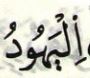 اِلْيَهُودُ